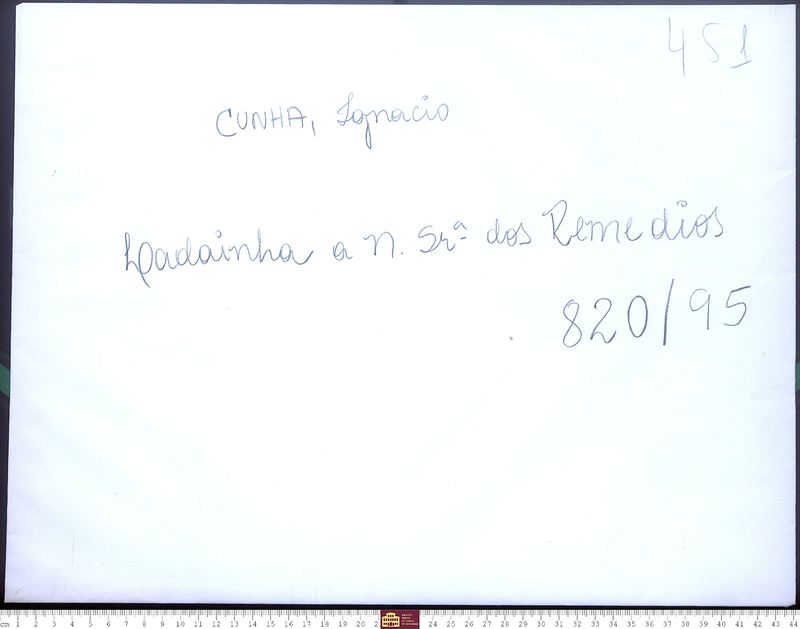 451
CUNHA, Ignacio
Ladainha a N. Srª dos Remedios
820/95
cm 1 2 3 4 5 6 7 8 9 10 11 12 13 14 15 16 17 18 19 20 2 24 25 26 27 28 29 30 31 32 33 34 35 36 37 38 39 40 41 42 43 44